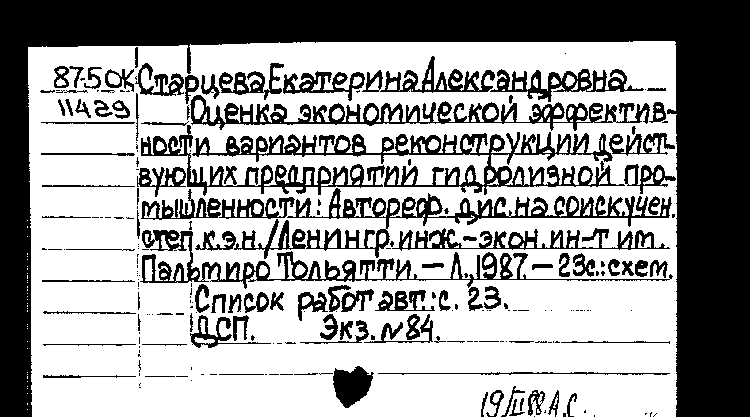 87-5 ОК Старцева, Екатерина Александровна.
11429 Оценка экономической эффектив-
ности вариантов реконструкции дейст-
вующих предприятий гидролизной про-
мышленности: Автореф. дис. на соиск. учен.
степ. к.э.н. / Ленингр. инж.-экон. ин-т им.
Пальмиро Тольятти. — Л., 1987. — 23с.: схем.
Список работ авт.: с. 23.
ДСП. Экз. №84.
19/II 88. А.С.